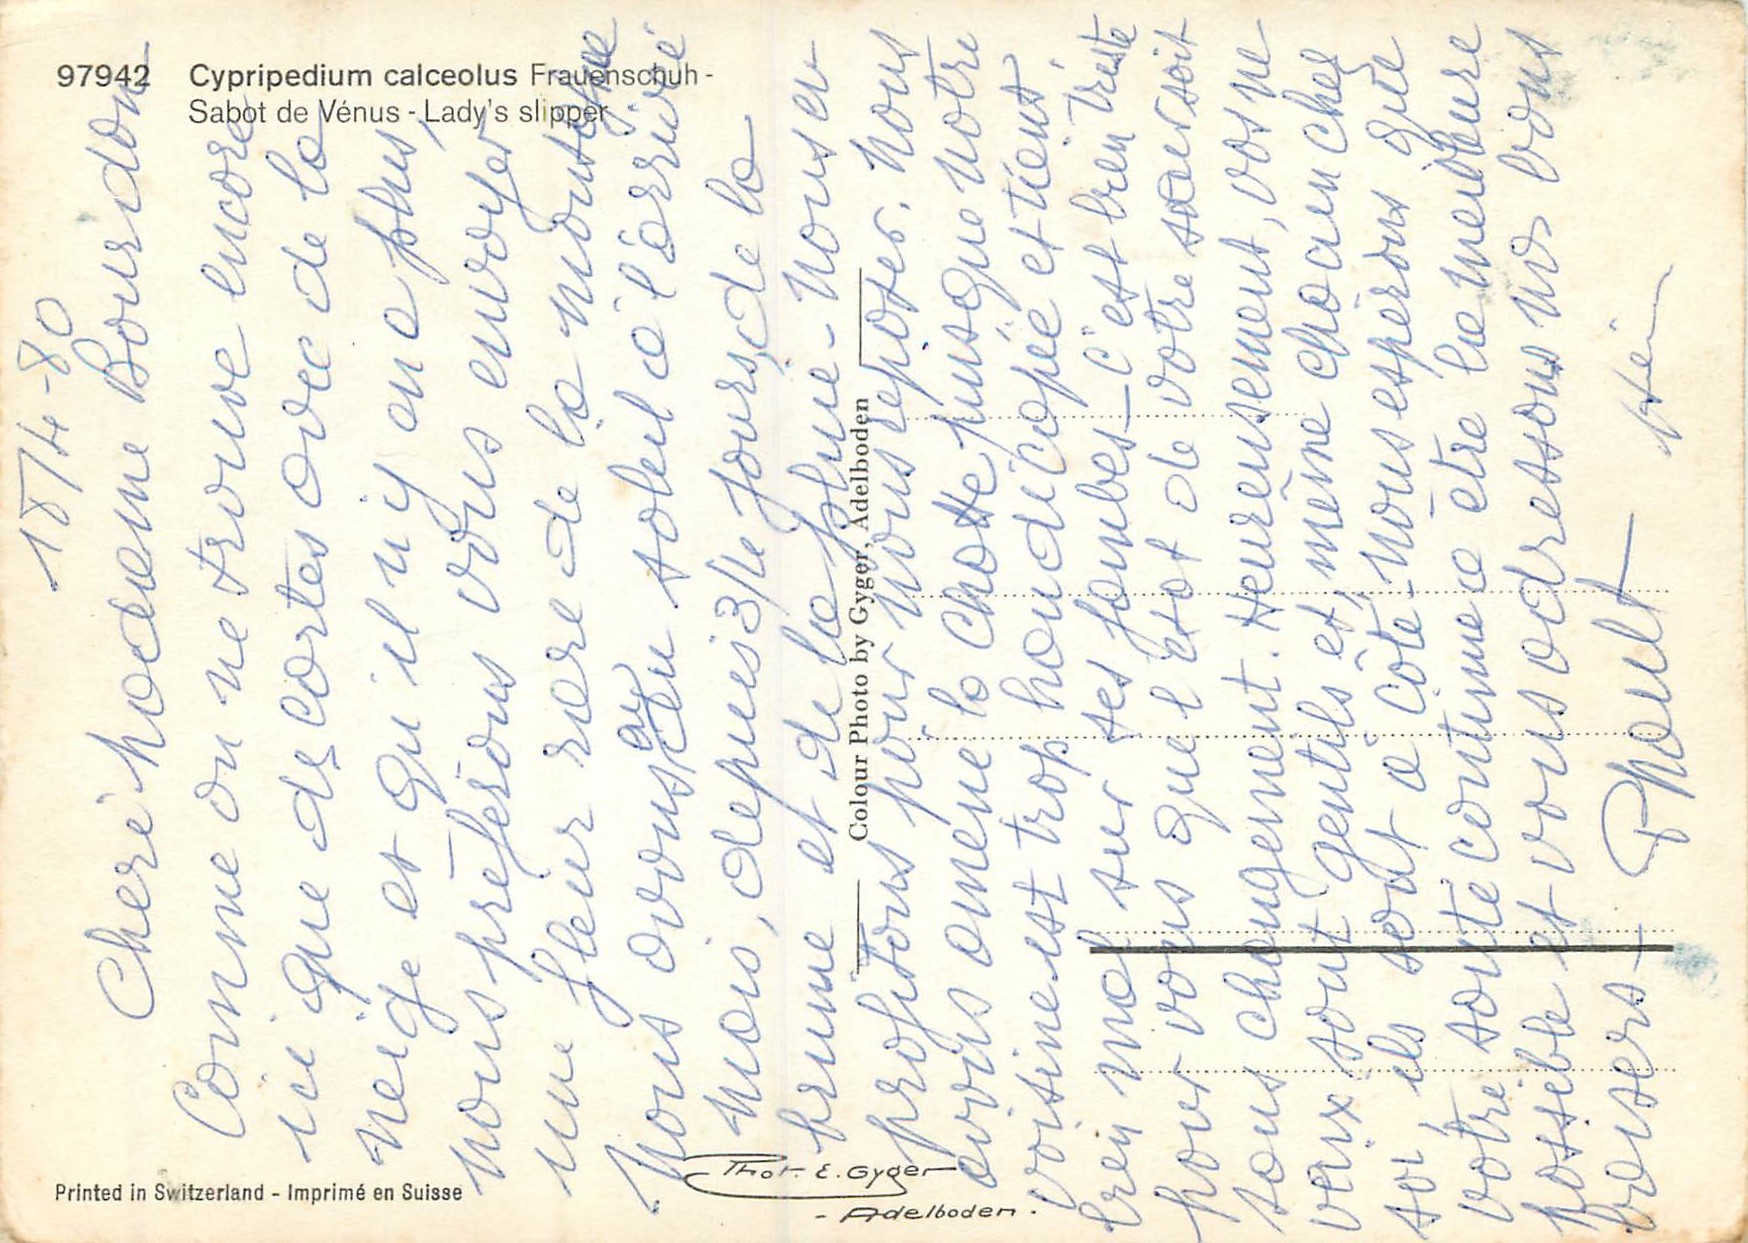 97942 Cypripedium calceolus Frauenschuh -
Sabot de Vénus - Lady's slipper
18/4-80
Chère Madame Bouridon
Comme on ne trouve encore
ici que des cartes avec de la
neige et qu'il n'y en a plus,
nous préférons vous envoyer
une fleur rare de la montagne
Nous avons eu du soleil à l'arrivée
mais, depuis 3/4 jours, de la
brume et de la pluie - Nous en
profitons pour nous reposer. Nous
avons amené la chatte puisque notre
voisine est trop handicapée et tient
bien mal sur ses jambes - c'est bien triste
pour vous que l'état de votre sœur soit
sans changement. Heureusement, vos ne
veux sont gentils et, même chacun chez
soi, ils sont à côté - Nous espérons que
votre santé continue à être la meilleure
possible et vous adressons nos bons
baisers -
Colour Photo by Gyger, Adelboden
Phot. E. Gyger
- Adelboden.
Printed in Switzerland - Imprimé en Suisse